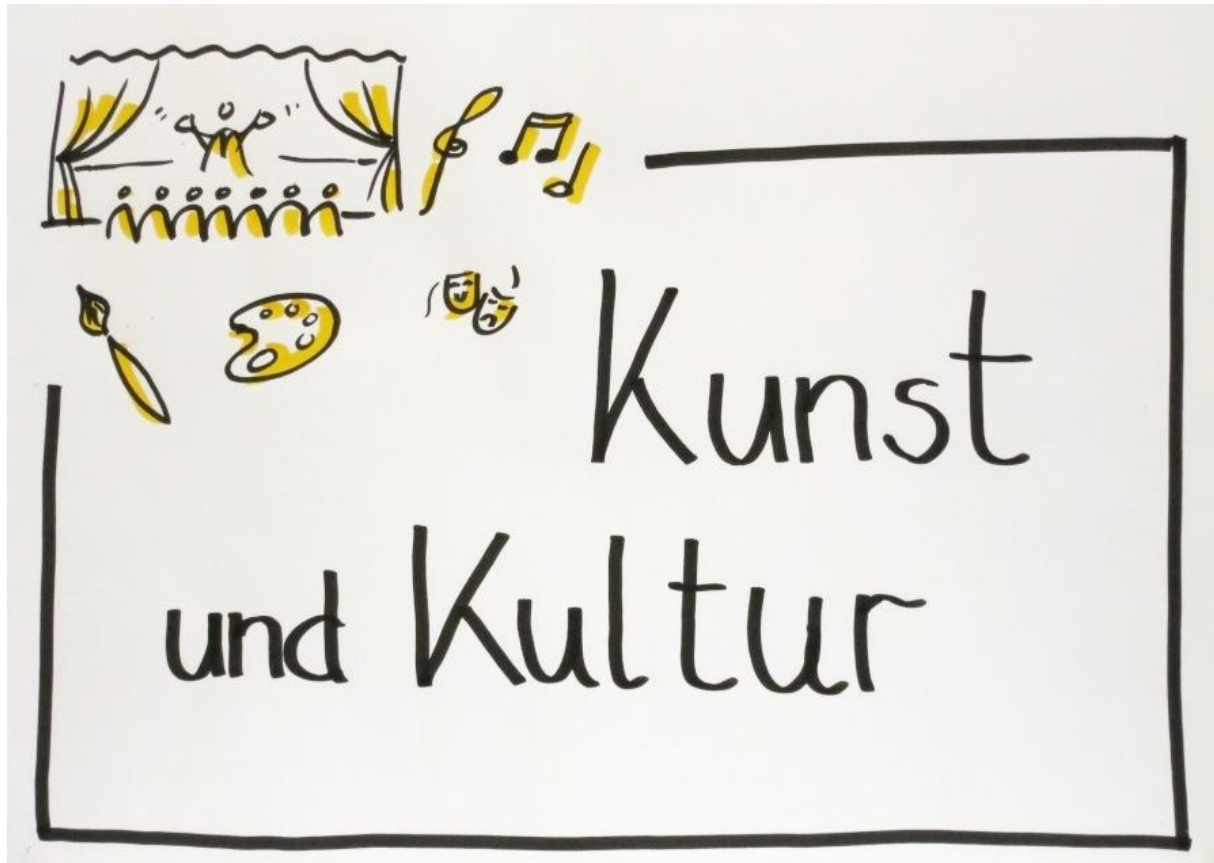 Kunst
und Kultur